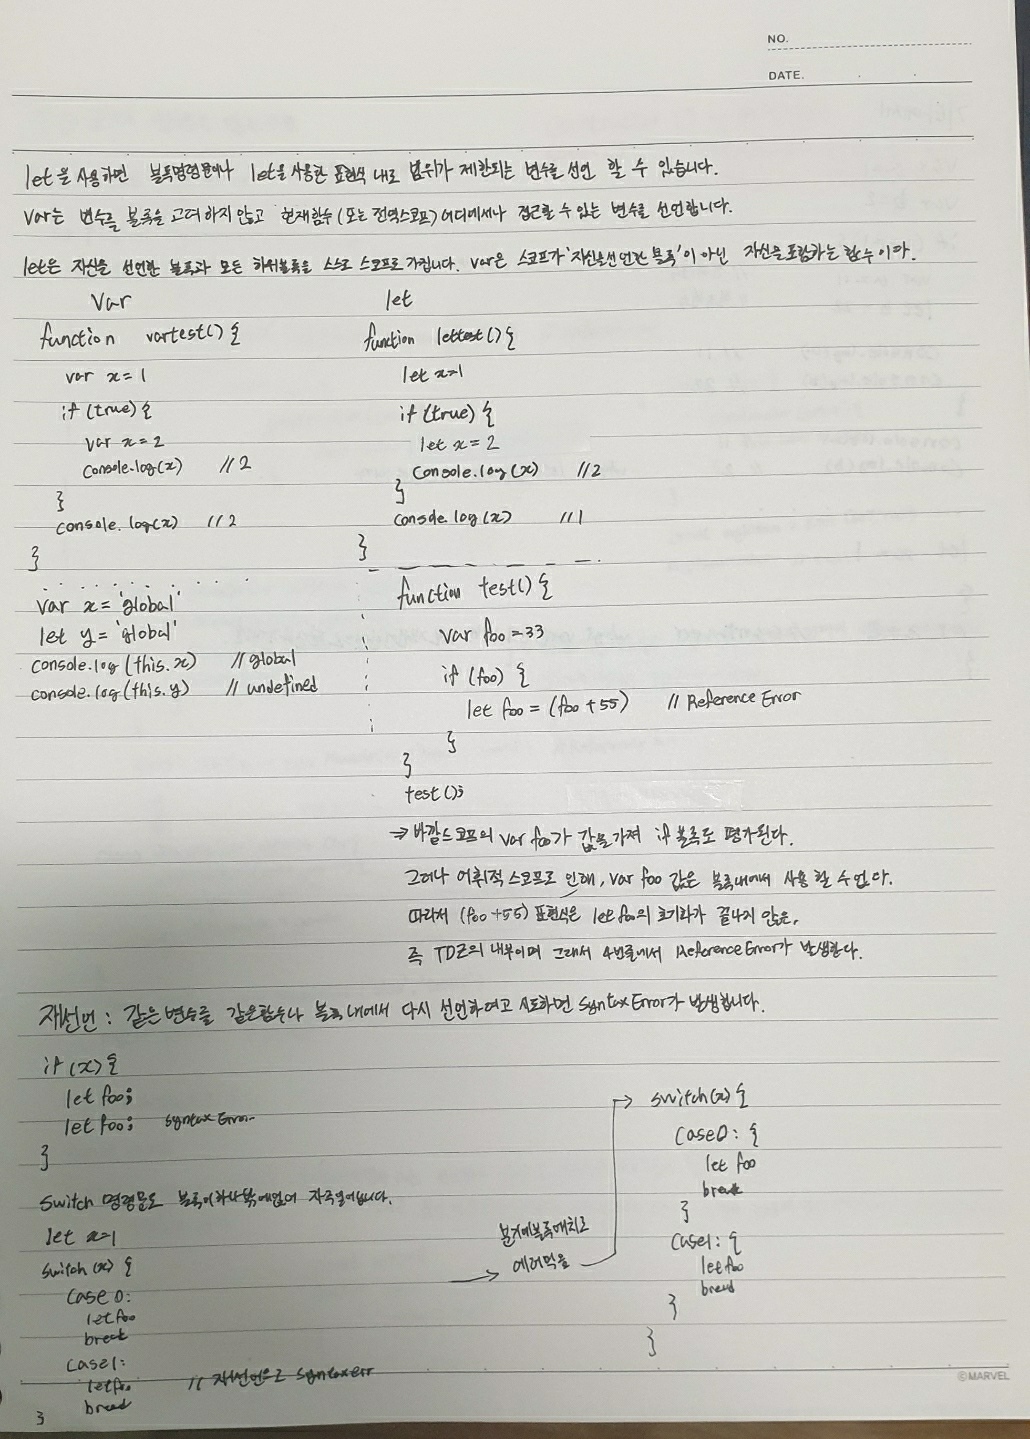 NO.
DATE.
let을 사용하면 블록명령문이나 let을 사용한 표현식 내로 범위가 제한되는 변수를 선언 할 수 있습니다.
var는 변수를 블록을 고려하지 않고 현재함수(또는 전역스코프)어디에서나 접근할 수 있는 변수를 선언합니다.
let은 자신을 선언한 블록과 모든 하위블록을 스스로 스코프로 가집니다. var은 스코프가 '자신을선언한 블록'이 아닌 자신을 포함하는 함수이다.
var
function vartest() {
var x = 1
if (true) {
var x = 2
console.log(x) // 2
}
console.log(x) // 2
}
let
function lettest() {
let x=1
if (true) {
let x = 2
console.log(x) // 2
}
console.log(x) // 1
}
var x = 'global'
let y = 'global'
console.log(this.x) // global
console.log(this.y) // undefined
function test() {
var foo = 33
if (foo) {
let foo = (foo + 55) // Reference Error
}
}
test();
⇒ 바깥스코프의 var foo가 값을 가져 if 블록도 평가된다.
그러나 어휘적 스코프로 인해, var foo 값은 블록내에서 사용 할 수 없다.
따라서 (foo +55) 표현식은 let foo의 초기화가 끝나지 않은,
즉 TDZ의 내부이며 그래서 4번줄에서 Reference Error가 발생한다.
재선언 : 같은 변수를 같은함수나 블록 내에서 다시 선언하려고 시도하면 syntax Error가 발생합니다.
if (x) {
let foo;
let foo; syntax Error
}
switch 명령문도 블록이 하나밖에없어
let x=1
switch (x) {
case 0:
let foo
break
case1:
let foo // 재선언으로 syntaxerr
break
}
블록배치로
에러먹을
switch(x) {
case0: {
let foo
break
}
case1: {
let foo
break
}
}
©MARVEL